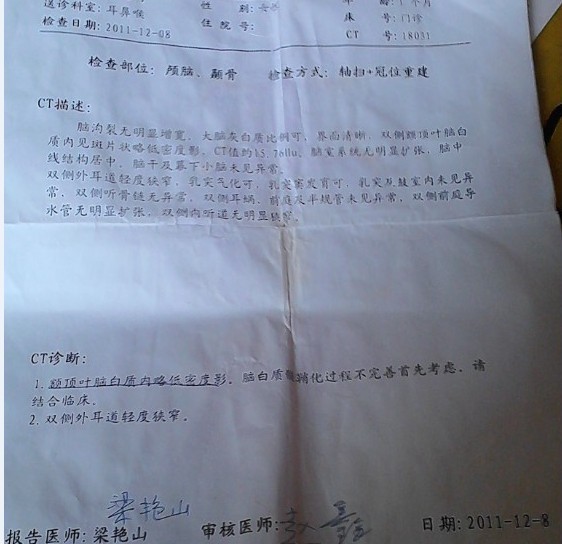 送诊科室: 耳鼻喉 性 别:
检查日期: 2011-12-08 住 院 号: 床 号: 门诊
CT 号: 18031
检查部位: 颅脑、颞骨 检查方式: 轴扫+冠位重建
CT描述:
脑沟裂无明显增宽, 大脑灰白质比例可, 界面清晰, 双侧额顶叶脑白
质内见斑片状略低密度影, CT值约15.76Hu, 脑室系统无明显扩张, 脑中
线结构居中, 脑干及幕下小脑未见异常。
双侧外耳道轻度狭窄, 乳突气化可, 乳突窦发育可, 乳突及鼓室内未见异
常, 双侧听骨链无异常, 双侧耳蜗、前庭及半规管未见异常, 双侧前庭导
水管无明显扩张, 双侧内听道无明显狭窄。
CT诊断:
1. 额顶叶脑白质内略低密度影, 脑白质髓鞘化过程不完善首先考虑, 请
结合临床。
2. 双侧外耳道轻度狭窄。
梁艳山
报告医师: 梁艳山 审核医师: 日期: 2011-12-8